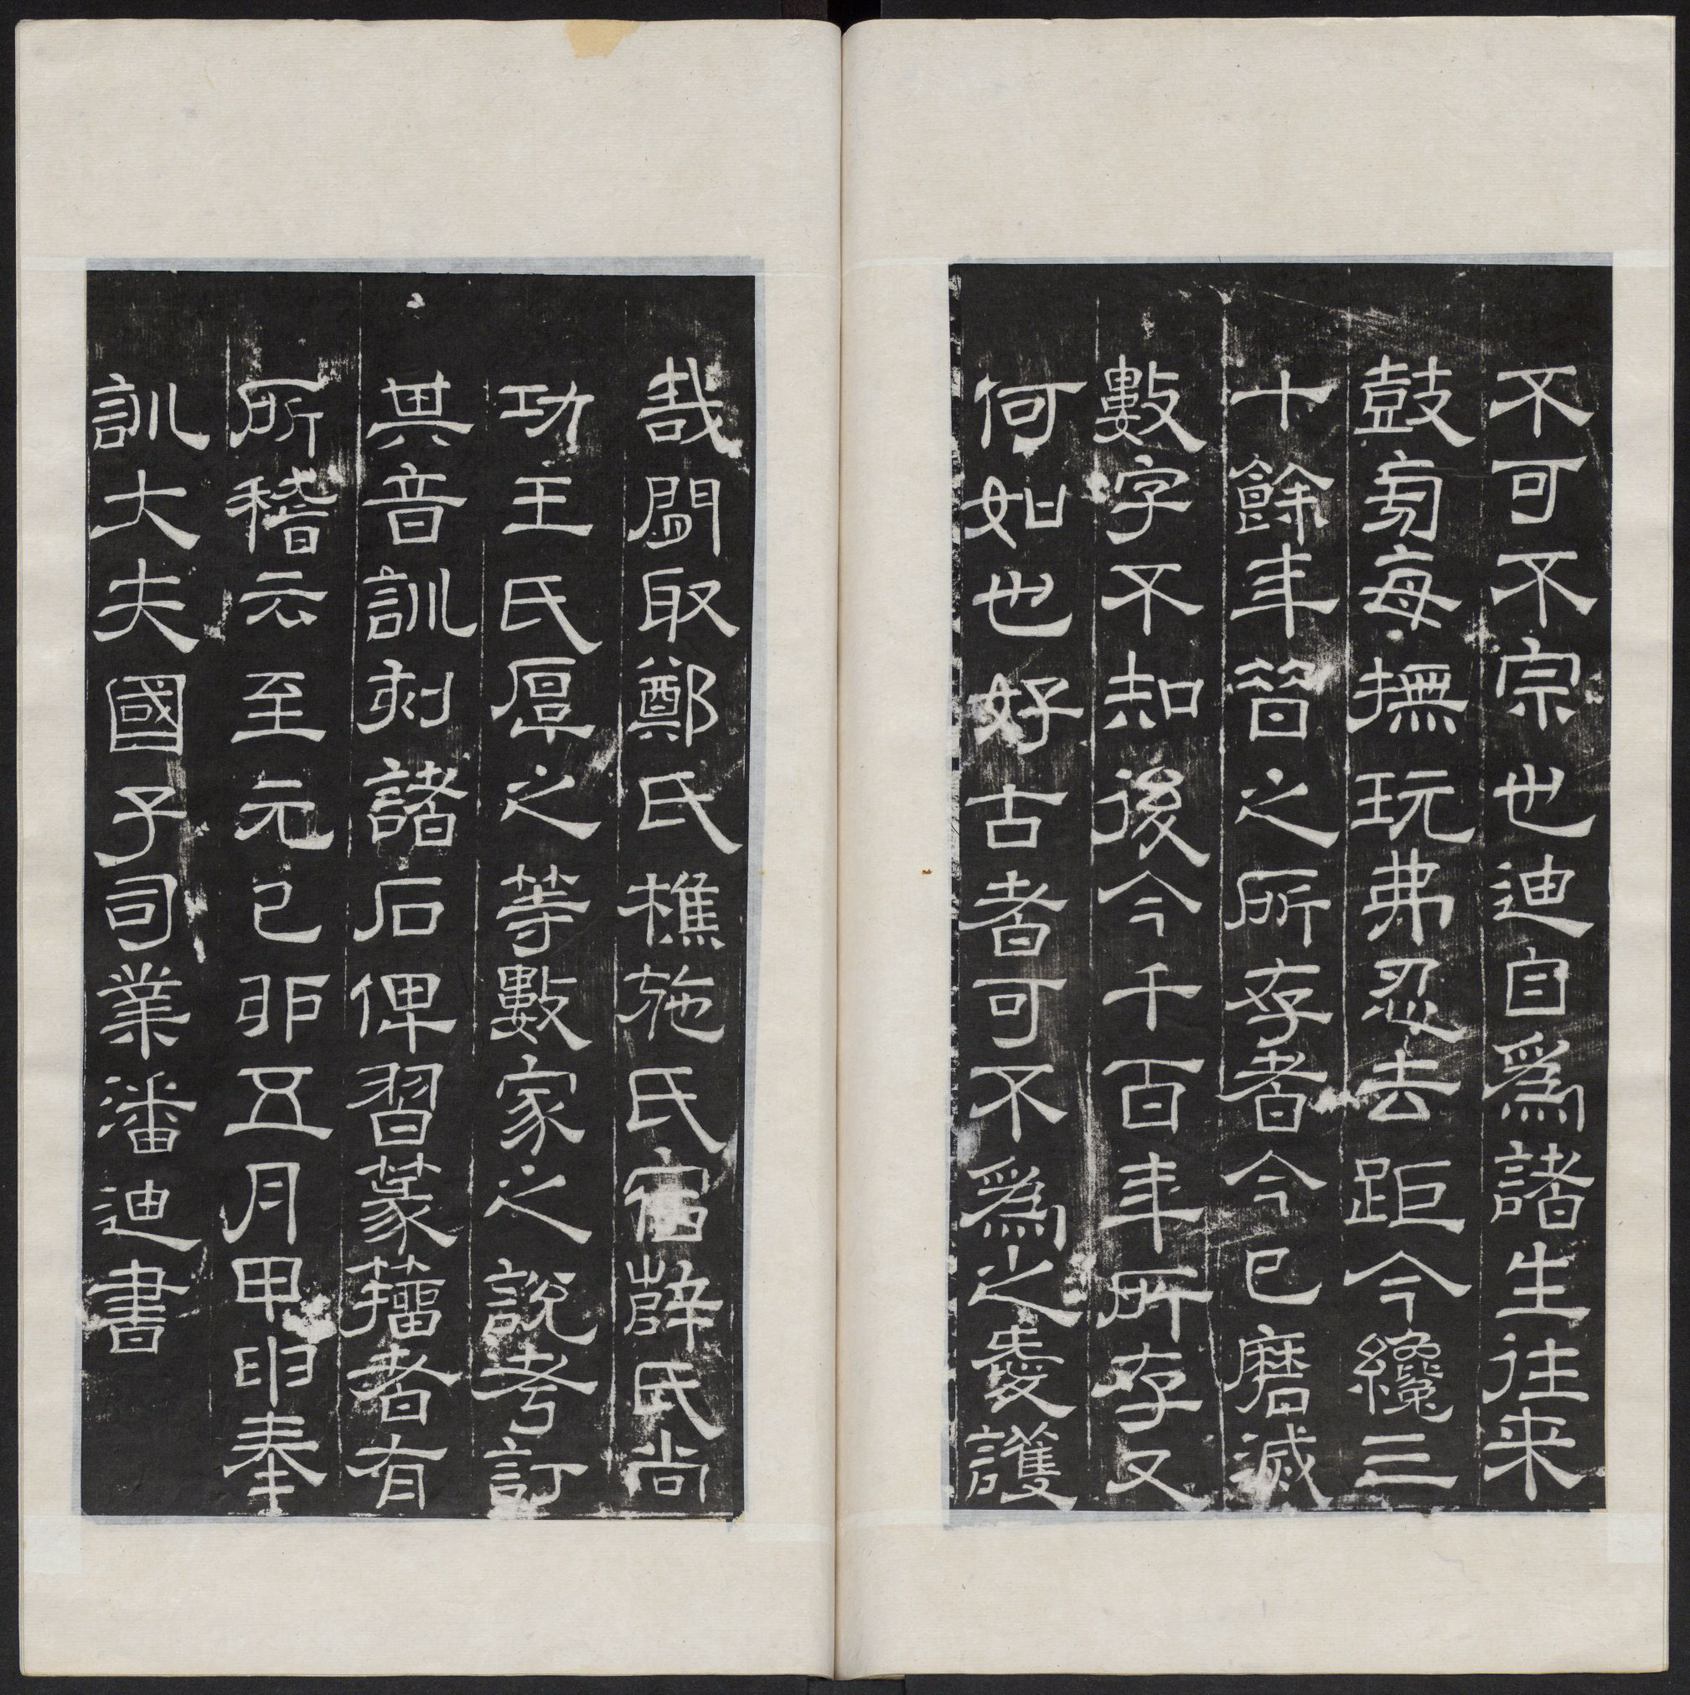 不可不宗也迪自爲諸生往来
鼓旁每撫玩弗忍去距今纔三
十餘年昔之所存者今已磨滅
數字不知後今千百年所存又
何如也好古者可不爲之愛護
哉閒取鄭氏樵施氏宿薛氏尚
功王氏厚之等數家之說考訂
其音訓刻諸石俾習篆籀者有
所稽云至元己卯五月甲申奉
訓大夫國子司業潘迪書